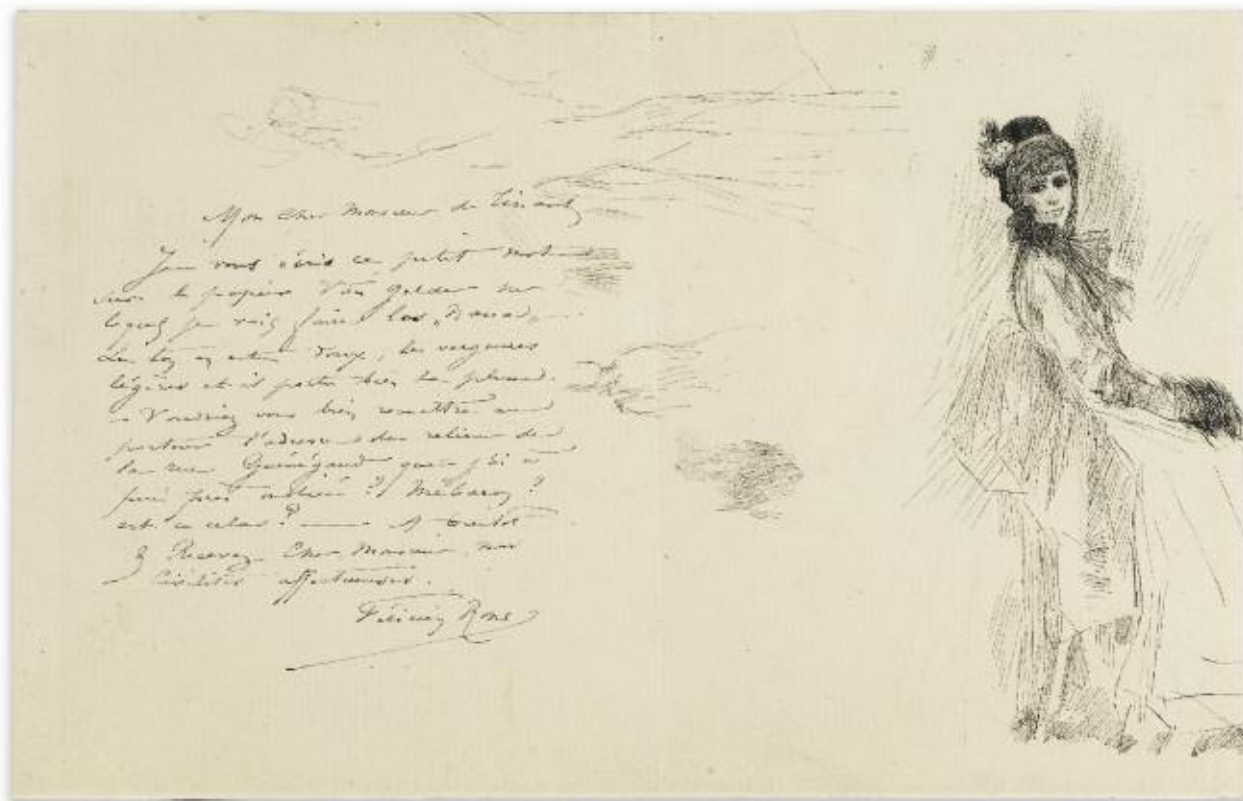 Mon Cher Monsieur de Linard
Je vous écris ce petit mot
sur le papier Van Gelder sur
lequel je vais faire les
Le ton en est doux, les vergeures
légères et il porte bien la plume.
– Voudriez vous bien remettre au
porteur l'adresse du relieur de
la rue Guénégaud que j'ai à
peu près oublié?
est ce cela? — A bientôt
& Recevez Cher Monsieur, mes
civilités affectueuses.
Félicien Rops